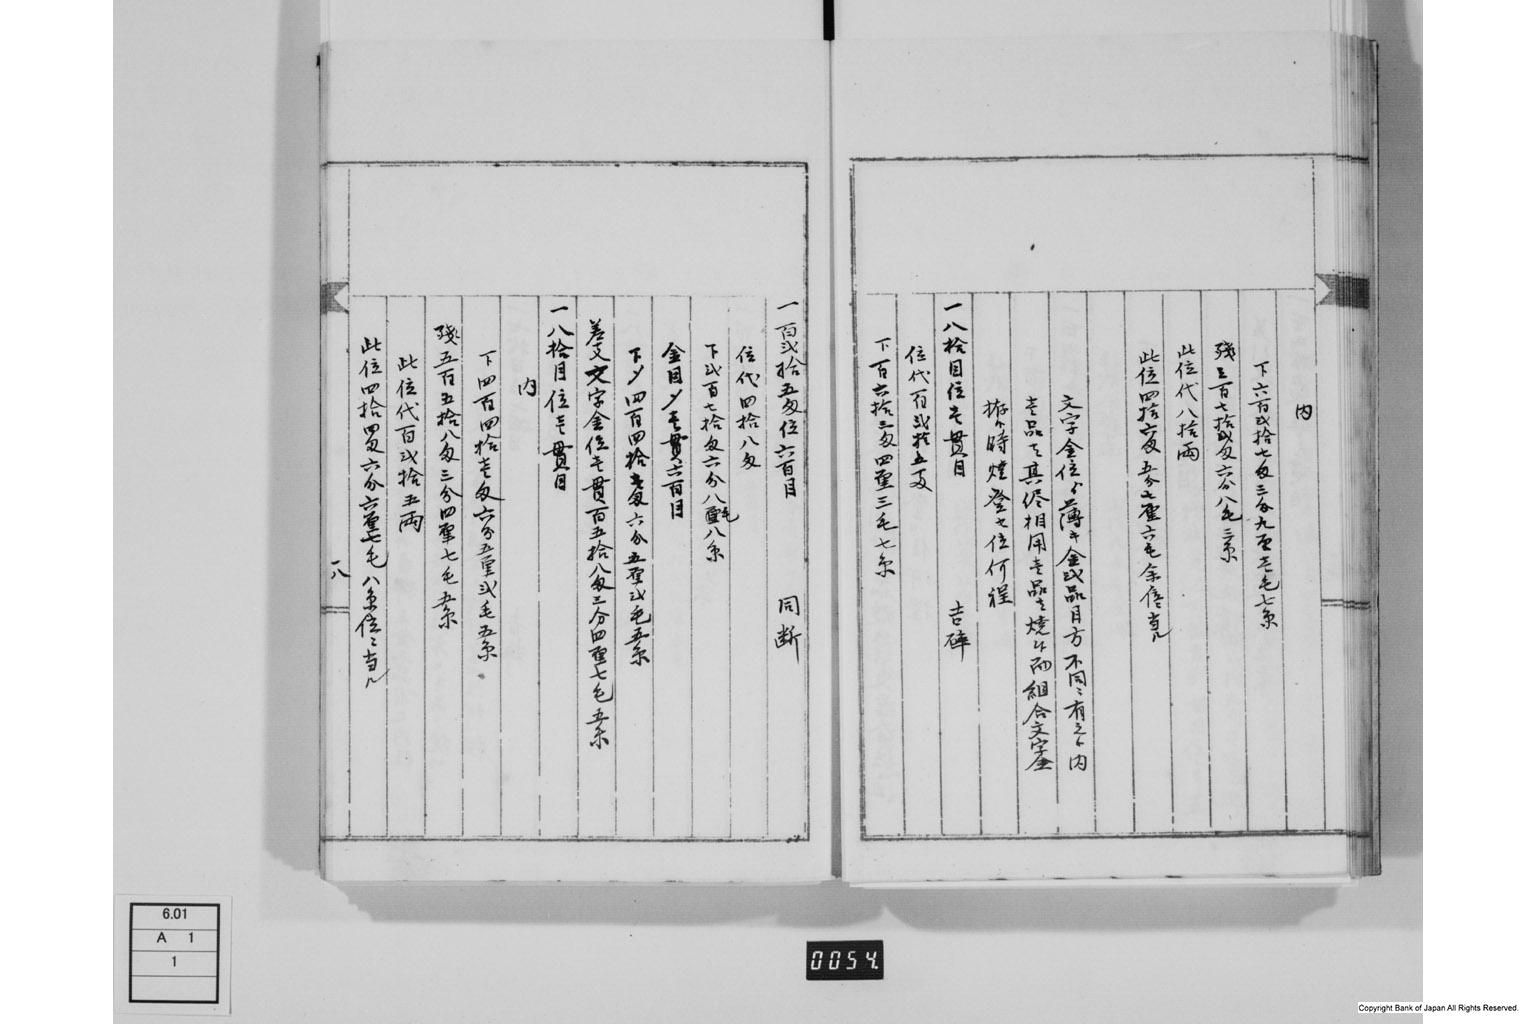 内
下六百弐拾七匁三分九厘壱毛七糸
残三百七拾弐匁六分八毛三糸
此位代八拾両
此位四拾六匁五分七厘六毛余位ニ当ル
文字金位ゟ薄キ金或品目方不同ニ有之候内
壱品ハ其侭相用壱品ハ焼候而組合文字金
拵候時焼登セ位何程
一八拾目位壱貫目 吉砕
位代百弐拾五友
下百六拾三匁四厘三毛七糸
一百弐拾五匁位六百目 同断
位代四拾八匁
下弐百七拾匁六分八厘毛八糸
金目〆壱貫六百目
下〆四百四拾壱匁六分五厘弐毛五糸
差支文字金位壱貫百五拾八匁三分四厘七毛五糸
一八拾目位壱貫目
内
下四百四拾壱匁六分五厘弐毛五糸
残五百五拾八匁三分四厘七毛五糸
此位代百弐拾五両
此位四拾四匁六分六厘七毛八糸位ニ当ル
八
6.01
A 1
1
0054.
Copyright Bank of Japan All Rights Reserved.